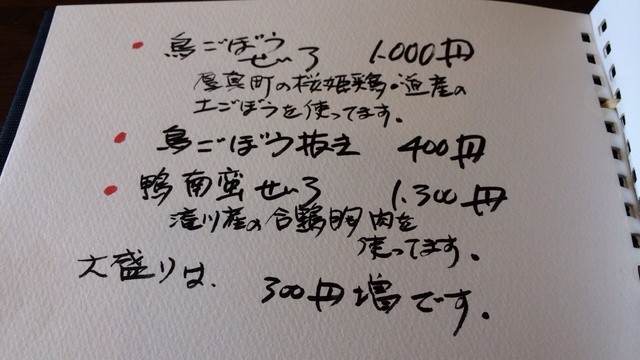 鳥ごぼう
せいろ 1.000円
厚真町の桜姫鶏・道産の
土ごぼうを使ってます。
鳥ごぼう抜き 400円
鴨南蛮せいろ 1.300円
滝川産の合鴨胸肉を
使ってます。
大盛りは、
300円増です。